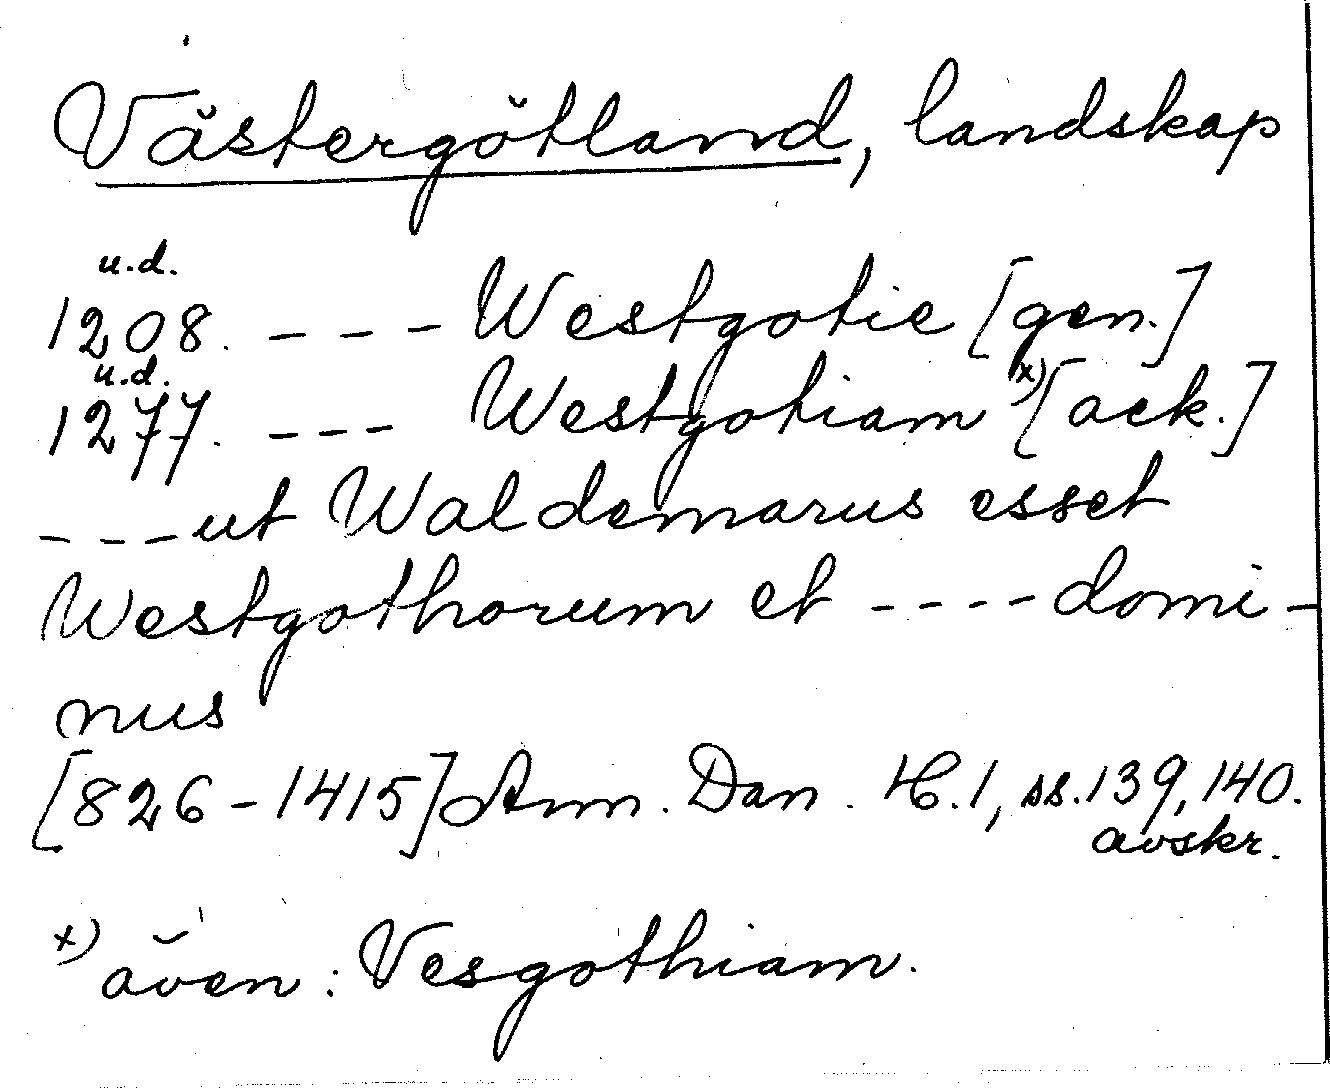 Västergötland, landskap
u.d.
1208. - - - Westgotie [gen.]
u.d.
1277. - - - Westgotiam x) [ack.]
- - - ut Waldemarus esset
Westgothorum et - - - - domi-
nus
[826-1415] Ann. Dan. H.1, ss.139, 140.
avskr.
x) även: Vesgothiam.